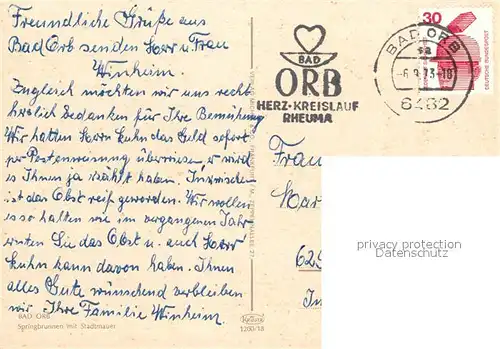 Freundliche Grüße aus
Bad Orb senden Herr u. Frau
Winheim.
Zugleich möchten wir uns recht
herzlich bedanken für Ihre Bemühung
Wir hatten Herrn Kuhn das Geld sofort
per Postanweisung überwiesen, er wird
es Ihnen ja erzählt haben. Inzwischen
ist das Obst reif geworden. Wir wollen
es so halten wie im vergangenen Jahr
ernten Sie das Obst u. auch Herr
Kuhn kann davon haben. Ihnen
alles Gute wünschend verbleiben
wir Ihre Familie Winheim.
BAD ORB
Springbrunnen mit Stadtmauer
BAD
ORB
HERZ-KREISLAUF
RHEUMA
BAD ORB
-6.9.73-18
6482
30
DEUTSCHE BUNDESPOST
Frau
Mar
625
privacy protection
Datenschutz
1260/18